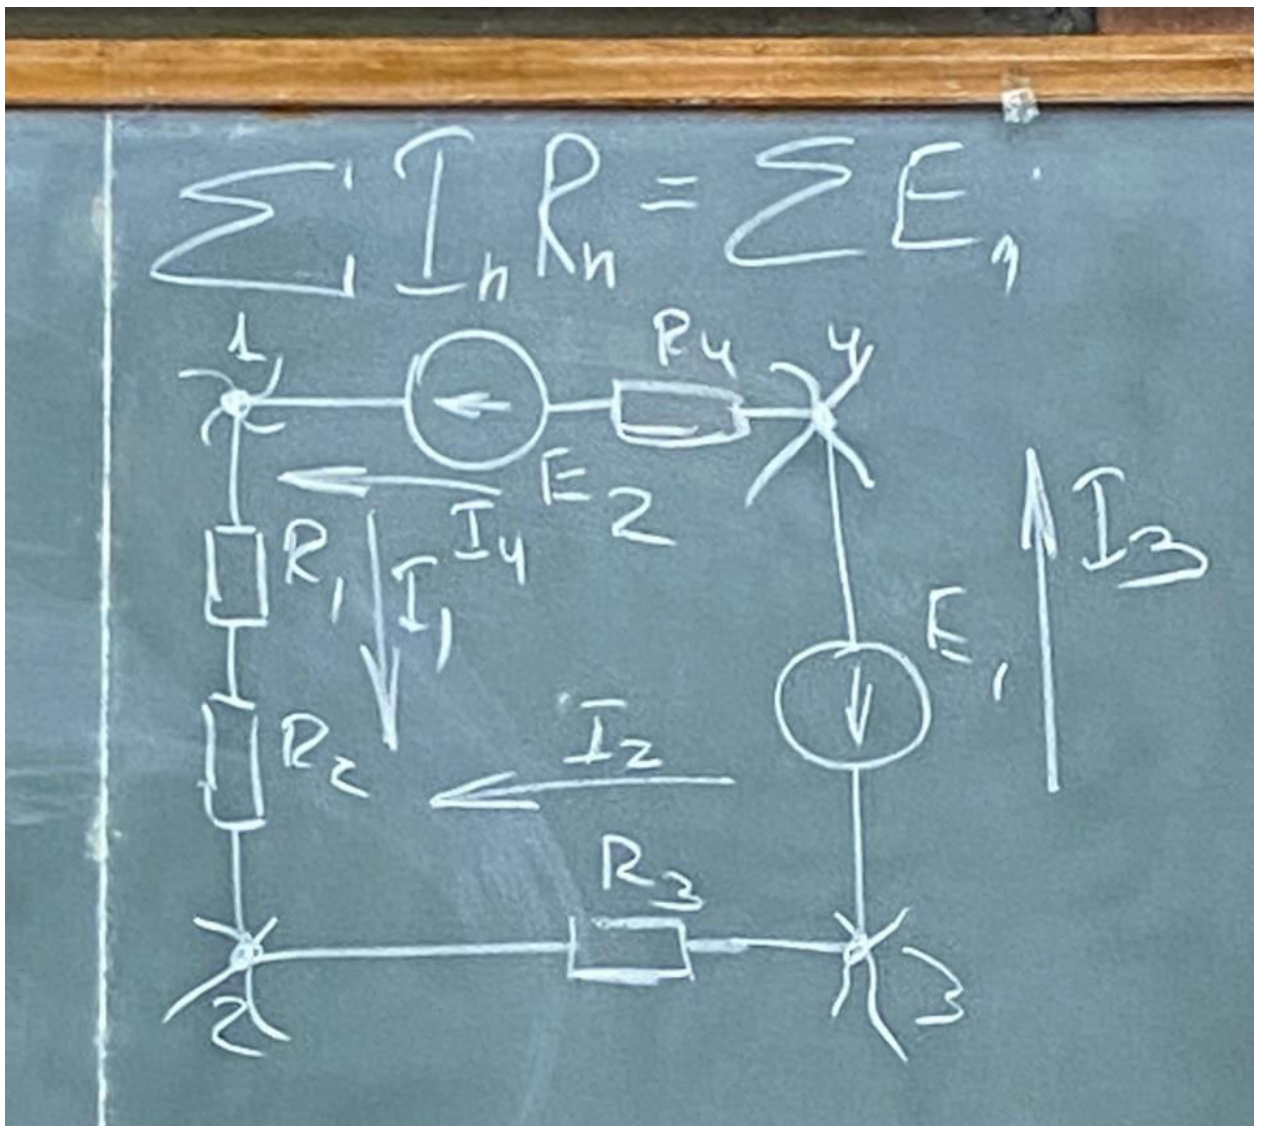 ∑ I_n R_n = ∑ E_n
1
R4
4
E2
I4
I3
R1
I1
E1
R2
I2
R3
2
3